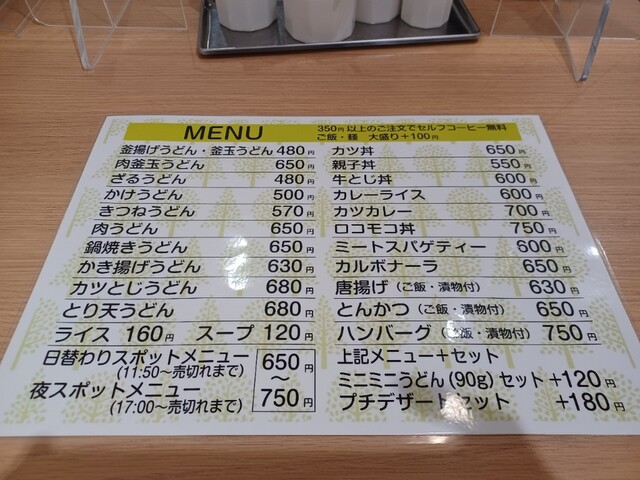 MENU
350円以上のご注文でセルフコーヒー無料
ご飯・麺 大盛り+100円
釜揚げうどん・釜玉うどん 480円
肉釜玉うどん 650円
ざるうどん 480円
かけうどん 500円
きつねうどん 570円
肉うどん 650円
鍋焼きうどん 650円
かき揚げうどん 630円
カツとじうどん 680円
とり天うどん 680円
ライス 160円 スープ 120円
日替わりスポットメニュー
(11:50〜売切れまで)
夜スポットメニュー
(17:00〜売切れまで)
650
〜
750円
カツ丼 650円
親子丼 550円
牛とじ丼 600円
カレーライス 600円
カツカレー 700円
ロコモコ丼 750円
ミートスパゲティー 600円
カルボナーラ 650円
唐揚げ(ご飯・漬物付) 630円
とんかつ(ご飯・漬物付) 650円
ハンバーグ(ご飯・漬物付) 750円
上記メニュー+セット
ミニミニうどん(90g)セット +120円
プチデザートセット +180円